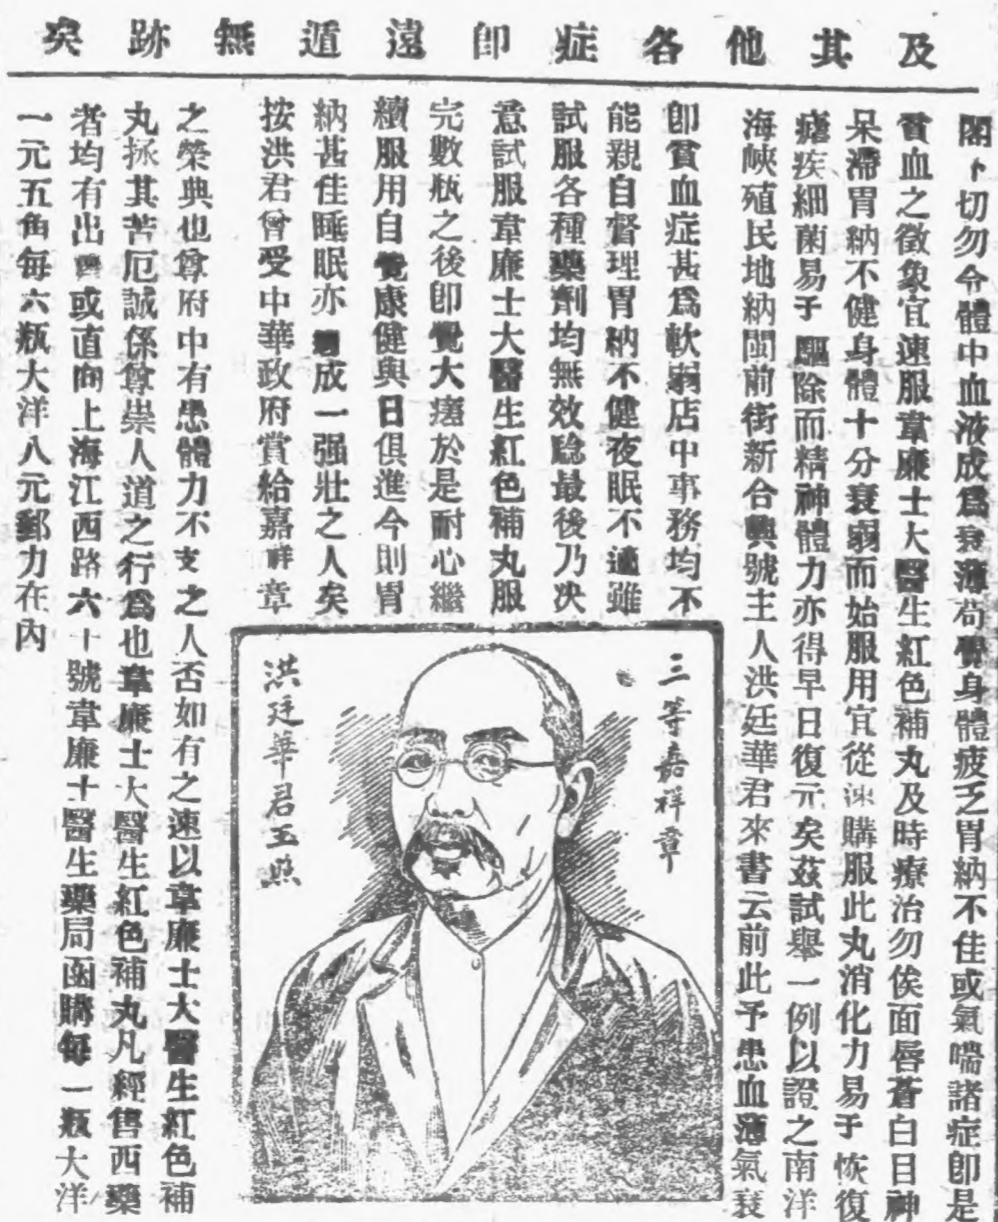 及其他各症即遠遁無跡矣
閣下切勿令體中血液成爲衰薄苟覺身體疲乏胃納不佳或氣喘諸症即是
貧血之徵象宜速服韋廉士大醫生紅色補丸及時療治勿俟面唇蒼白目神
呆滯胃納不健身體十分衰弱而始服用宜從速購服此丸消化力易于恢復
瘧疾細菌易于驅除而精神體力亦得早日復元矣茲試舉一例以證之南洋
海峽殖民地納閩前街新合興號主人洪廷華君來書云前此予患血薄氣衰
即貧血症甚爲軟弱店中事務均不
能親自督理胃納不健夜眠不適雖
試服各種藥劑均無效騐最後乃决
意試服韋廉士大醫生紅色補丸服
完數瓶之後即覺大痊於是耐心繼
續服用自覺康健與日俱進今則胃
納甚佳睡眠亦 成一强壯之人矣
按洪君曾受中華政府賞給嘉祥章
之榮典也尊府中有患體力不支之人否如有之速以韋廉士大醫生紅色補
丸拯其苦厄誠係尊崇人道之行爲也韋廉士大醫生紅色補丸凡經售西藥
者均有出 或直向上海江西路六十號韋廉士醫生藥局函購每一瓶大洋
一元五角每六瓶大洋八元郵力在內
三等嘉祥章
洪廷華君玉照